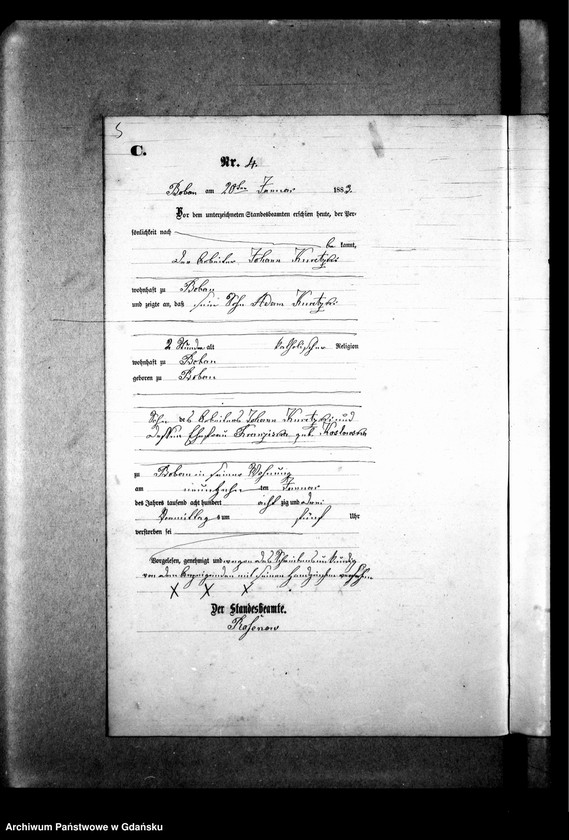 5
C.
Nr. 4.
Boban am 20ten Januar 1883.
Vor dem unterzeichneten Standesbeamten erschien heute, der Per-
sönlichkeit nach
be kannt,
der Arbeiter Johann
wohnhaft zu Boban
und zeigte an, daß sein Sohn Adam
2 Stunden alt katholischer Religion
wohnhaft zu Boban
geboren zu Boban
Sohn des Arbeiters Johann und
dessen Ehefrau Franziska geb.
zu Boban in seiner Wohnung
am neunzehn ten Januar
des Jahres tausend acht hundert acht zig und drei
Vormittags um fünf Uhr
verstorben sei
Vorgelesen, genehmigt und wegen des Schreibensunkundig
von dem Anzeigenden mit seinen Handzeichen versehen.
X X X
Der Standesbeamte.
Rosenow
Archiwum Państwowe w Gdańsku